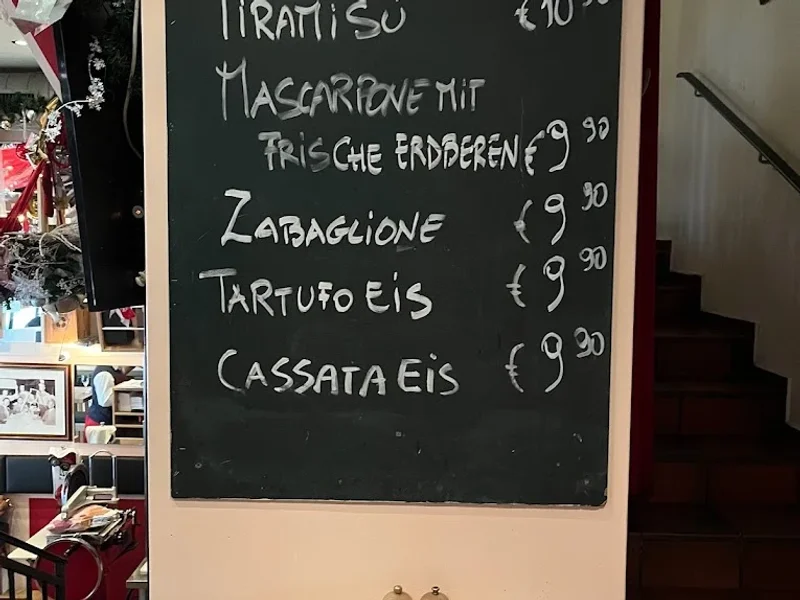 TiRAMiSÙ €10
MASCARPONE MIT
FRISCHE ERDBEREN €9 90
ZABAGLIONE €9 90
TARTUFO EiS €9 90
CASSATA EiS €9 90